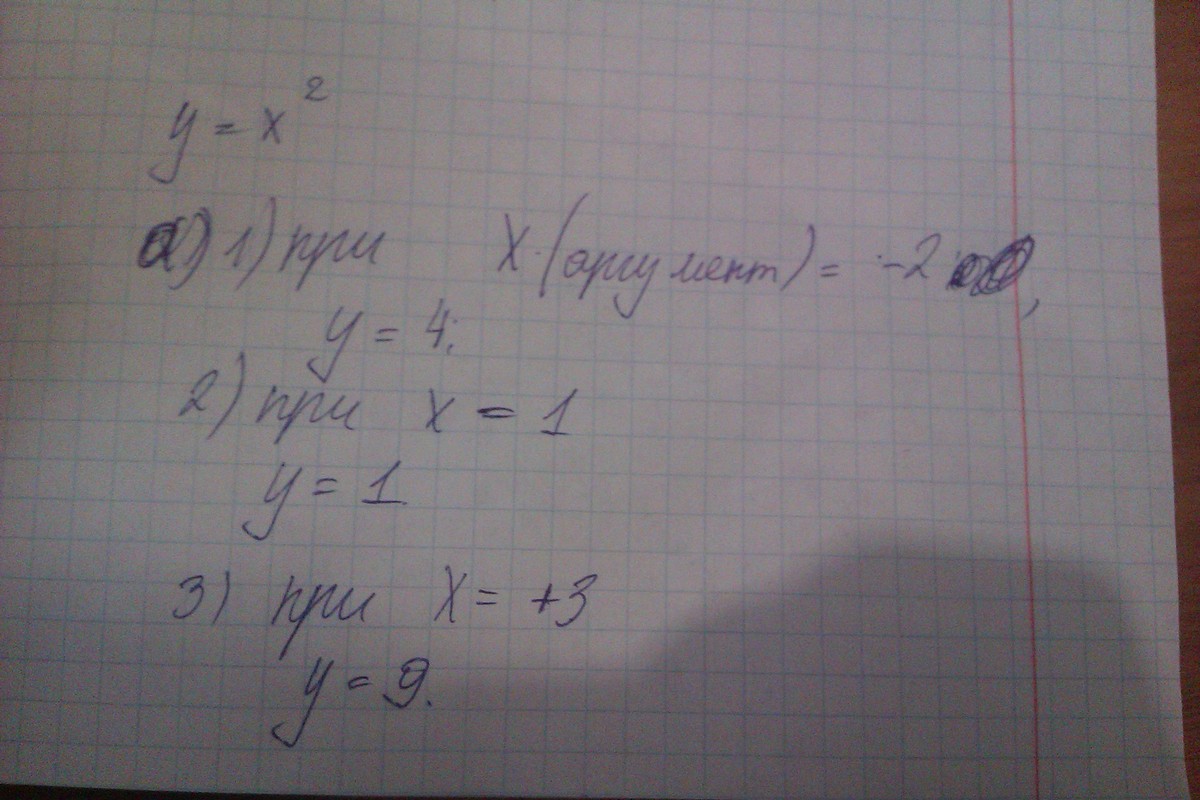 y = x²
а) 1) при X (аргумент) = -2,
y = 4;
2) при x = 1
y = 1.
3) при X = +3
y = 9.